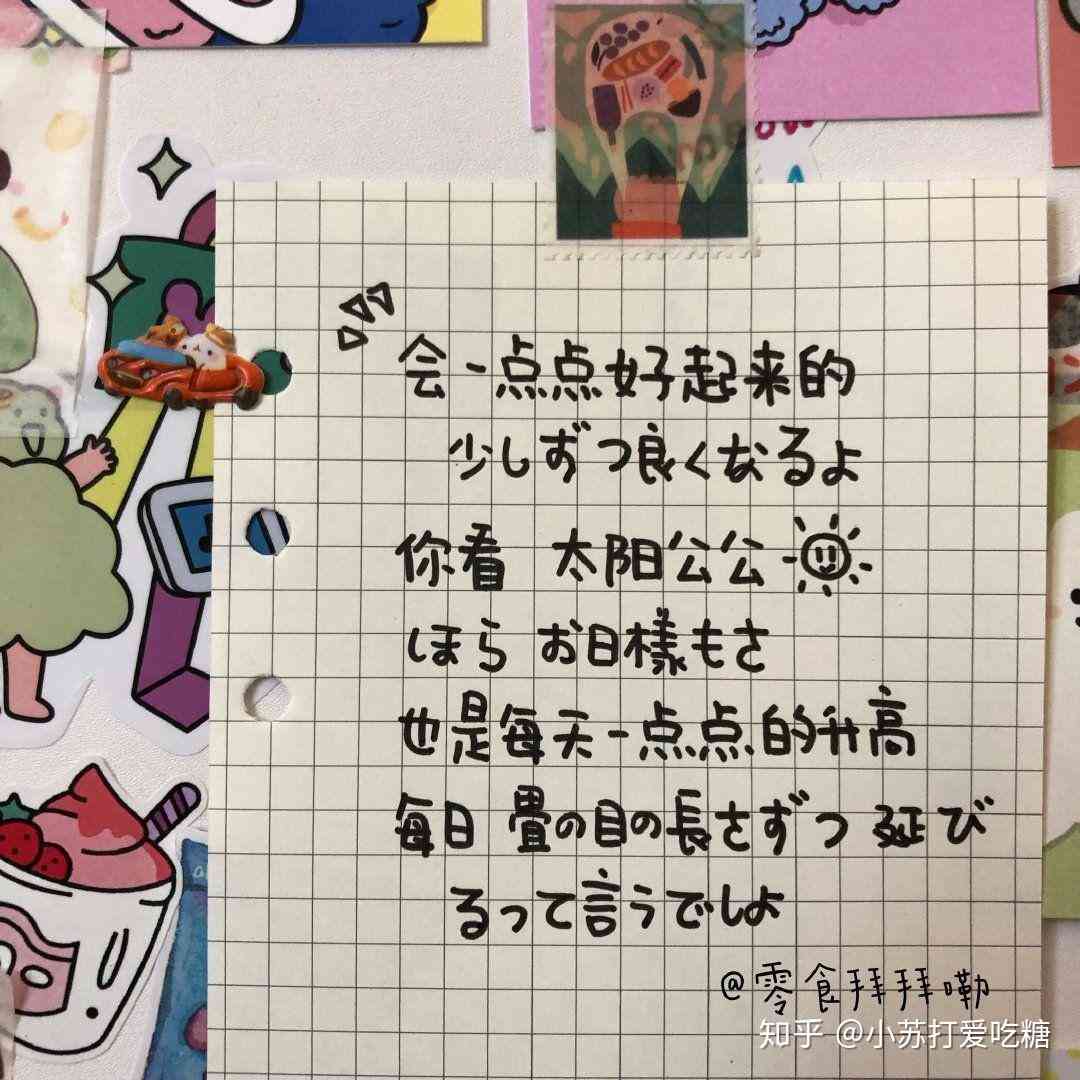 会一点点好起来的
少しずつ良くなるよ
你看 太阳公公
ほら お日様もさ
也是每天一点点的升高
毎日 畳の目の長さずつ 延び
るって言うでしょ
@零食拜拜嘞
知乎 @小苏打爱吃糖